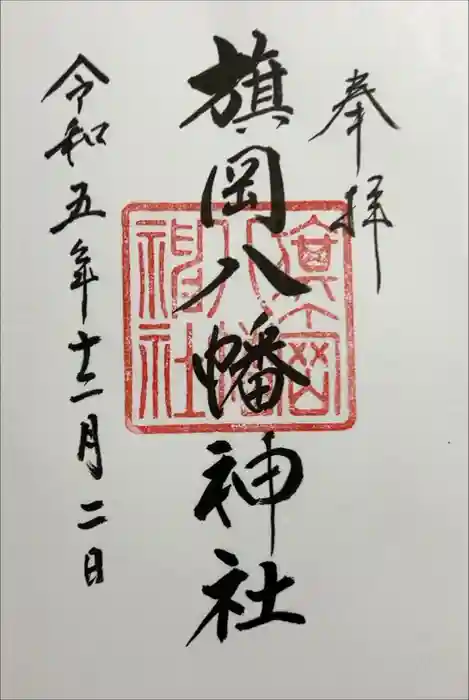 奉拝
旗岡八幡神社
旗岡八幡神社
令和五年十二月二日